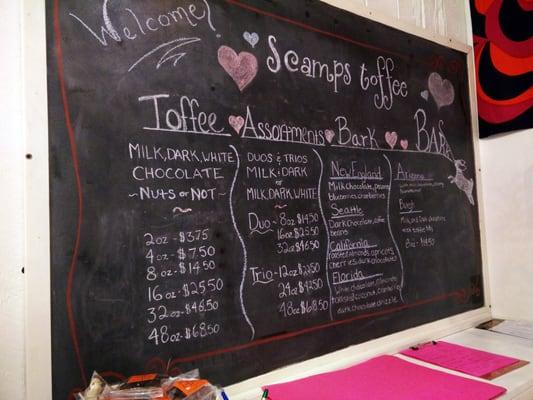 Welcome!
Scamps toffee
Toffee
MILK, DARK, WHITE
CHOCOLATE
~NUTS or NOT~
2oz - $3.75
4oz - $7.50
8oz - $14.50
16oz - $25.50
32oz - $46.50
48oz - $68.50
Assortments
DUOS & TRIOS
MILK & DARK
or
MILK, DARK, WHITE
Duo - 8oz $14.50
16oz $25.50
32oz $46.50
Trio - 12oz $22.50
24oz $42.50
48oz $68.50
Bark
New England
Milk Chocolate, pecans,
blueberries, cranberries
Seattle
Dark chocolate, coffee
beans
California
roasted almonds, apricots,
cherries, dark chocolate
Florida
White chocolate, almonds
toasted coconut, cranberries
dark chocolate drizzle
BARk
Arizona
Milk and Dark chocolate
8oz - $14.50